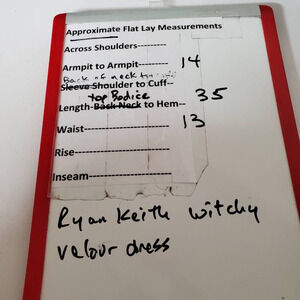 Approximate Flat Lay Measurements
Across Shoulders--------
Armpit to Armpit-------- 14
Back of neck to
Sleeve Shoulder to Cuff--
top Bodice
Length-Back Neck to Hem-- 35
Waist---------------------- 13
Rise-----------------------
Inseam-------------------
Ryan Keith witchy
velour dress